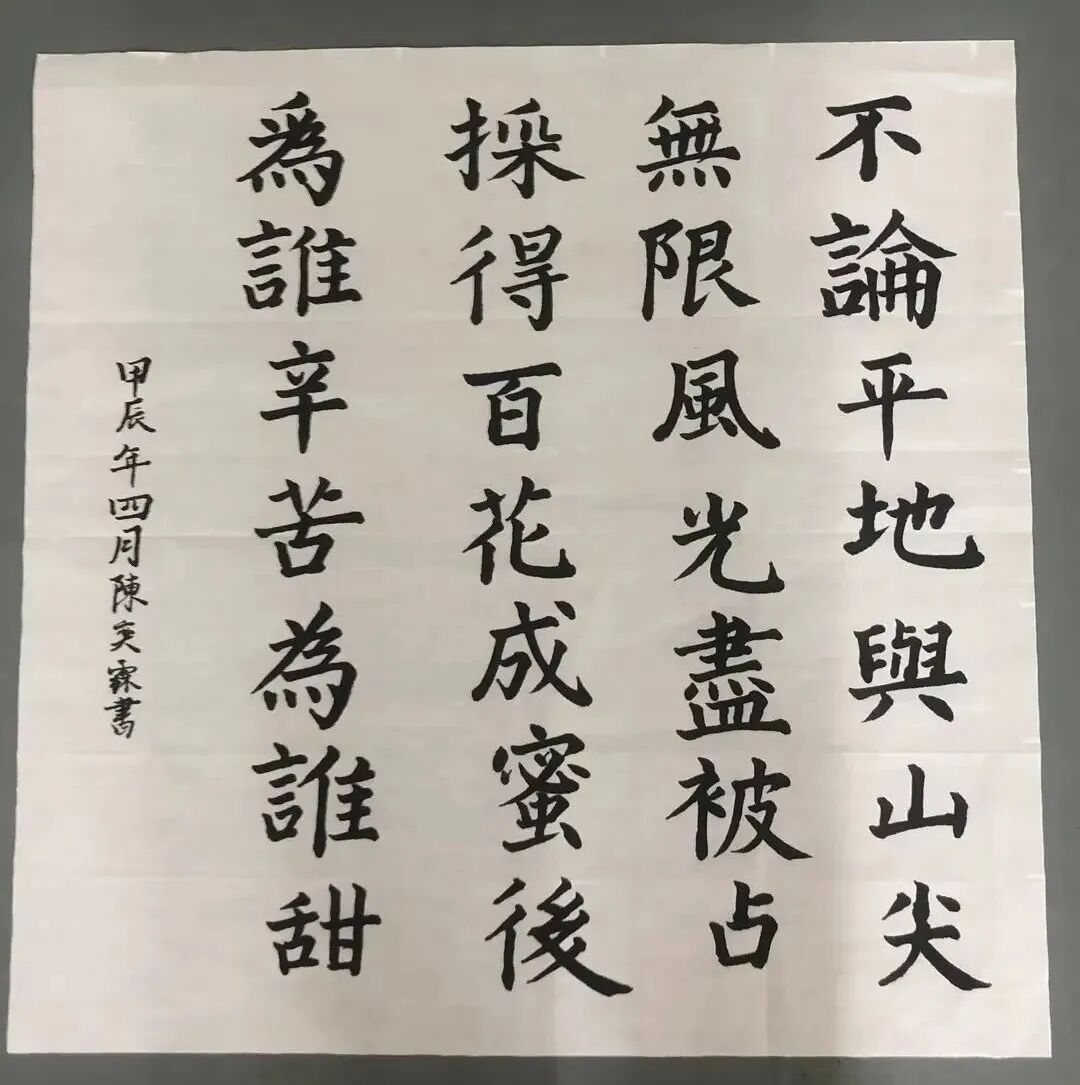 不論平地與山尖
無限風光盡被占
採得百花成蜜後
爲誰辛苦為誰甜
甲辰年四月陳奕霖書